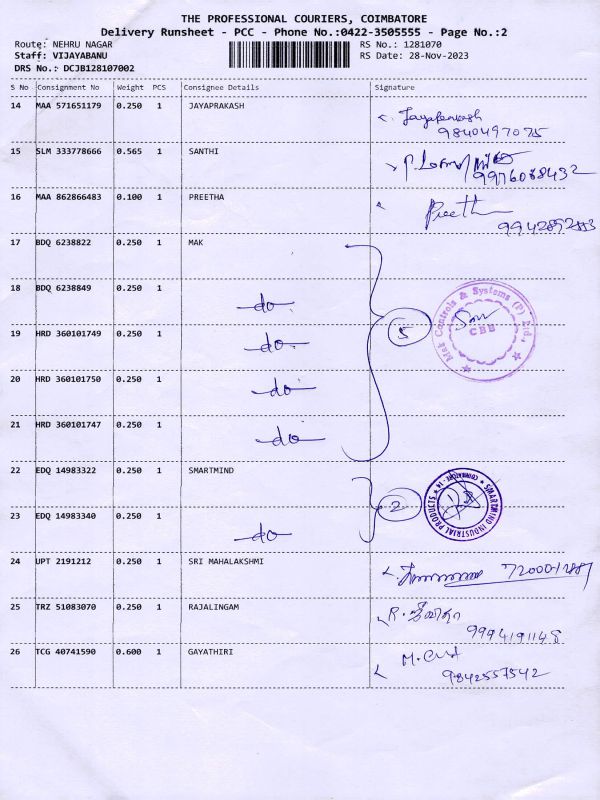 THE PROFESSIONAL COURIERS, COIMBATORE
Delivery Runsheet - PCC - Phone No.:0422-3505555 - Page No.:2
Route: NEHRU NAGAR RS No.: 1281070
Staff: VIJAYABANU RS Date: 28-Nov-2023
DRS No.: DCJB128107002
S No Consignment No Weight PCS Consignee Details Signature
14 MAA 571651179 0.250 1 JAYAPRAKASH Jayaprakash
9840497075
15 SLM 333778666 0.565 1 SANTHI
9976068432
16 MAA 862866483 0.100 1 PREETHA Preetha
17 BDQ 6238822 0.250 1 MAK
18 BDQ 6238849 0.250 1 do
19 HRD 360101749 0.250 1 do 5
20 HRD 360101750 0.250 1 do
21 HRD 360101747 0.250 1 do
Controls & Systems (P) Ltd.,
CBE
22 EDQ 14983322 0.250 1 SMARTMIND 2
SMARTMIND INDUSTRIAL PRODUCTS
COIMBATORE - 14
23 EDQ 14983340 0.250 1 do
24 UPT 2191212 0.250 1 SRI MAHALAKSHMI
25 TRZ 51083070 0.250 1 RAJALINGAM
9994191148
26 TCG 40741590 0.600 1 GAYATHIRI
9842557542